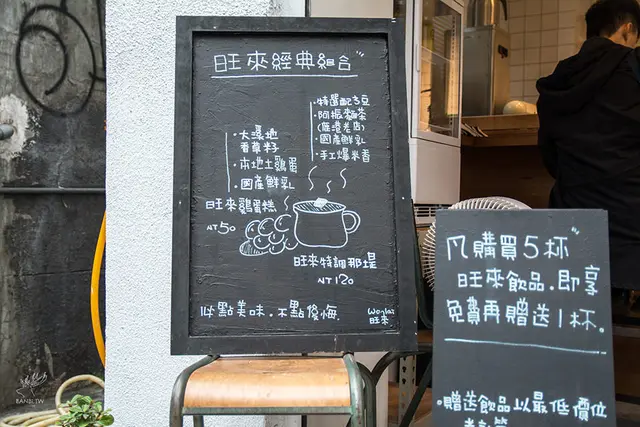 旺來經典組合
·特調配方豆
·阿振麵茶
(鹿港老店)
·國產鮮乳
·手工爆米香
·大漠地
香草籽
·本地土雞蛋
·國產鮮乳
旺來雞蛋糕
NT50
旺來特調那堤
NT120
1點美味.不點後悔.
旺來
凡購買5杯
旺來飲品.即享
免費再贈送1杯.
·贈送飲品以最低價位
BANBI.TW